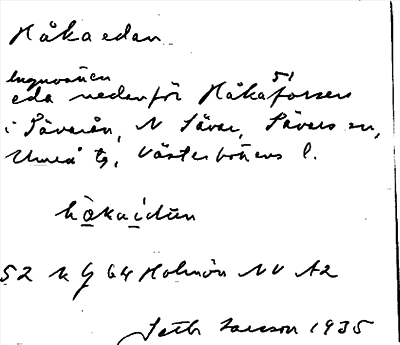 Håkaedan
lugnvatten
eda nedenför Håkaforsen
i Sävarån, N Sävar, Sävars sn,
Umeå tg, Västerbottens l.
hå̱kai̱dun
52 k g 64 Holmön NV A2
Seth Larsson 1935